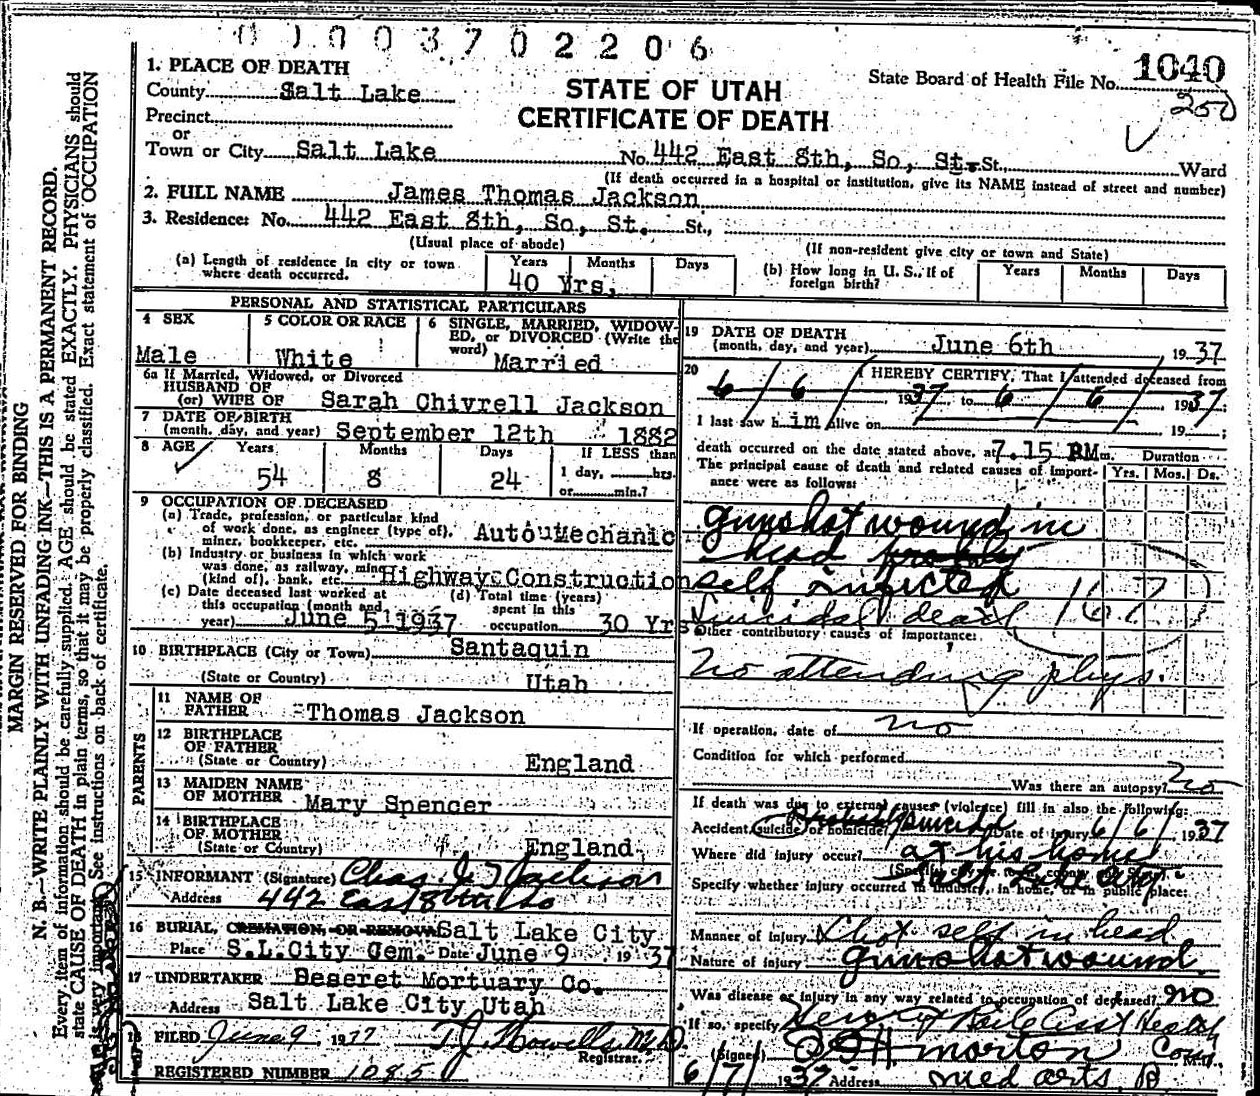 0 1 0 0 3 7 0 2 2 0 6
1040
250
1. PLACE OF DEATH
County Salt Lake
Precinct
or
Town or City Salt Lake No. 442 East 8th, So, St. St., Ward
STATE OF UTAH
CERTIFICATE OF DEATH
State Board of Health File No.
(If death occurred in a hospital or institution, give its NAME instead of street and number)
2. FULL NAME James Thomas Jackson
3. Residence: No. 442 East 8th, So, St. St.,
(Usual place of abode) (If non-resident give city or town and State)
(a) Length of residence in city or town where death occurred. Years Months Days
40 Yrs.
(b) How long in U. S., if of foreign birth? Years Months Days
PERSONAL AND STATISTICAL PARTICULARS
4 SEX Male
5 COLOR OR RACE White
6 SINGLE, MARRIED, WIDOWED, or DIVORCED (Write the word) Married
6a If Married, Widowed, or Divorced
HUSBAND OF
(or) WIFE OF Sarah Chivrell Jackson
7 DATE OF BIRTH
(month, day, and year) September 12th 1882
8 AGE Years Months Days If LESS than
54 8 24 1 day, hrs.
or min.?
9 OCCUPATION OF DECEASED
(a) Trade, profession, or particular kind
of work done, as engineer (type of),
miner, bookkeeper, etc. Auto Mechanic
(b) Industry or business in which work
was done, as railway, mine
(kind of), bank, etc. Highway Construction
(c) Date deceased last worked at
this occupation (month and
year) June 5 1937
(d) Total time (years)
spent in this
occupation 30 Yrs
10 BIRTHPLACE (City or Town) Santaquin
(State or Country) Utah
PARENTS
11 NAME OF
FATHER Thomas Jackson
12 BIRTHPLACE
OF FATHER
(State or Country) England
13 MAIDEN NAME
OF MOTHER Mary Spencer
14 BIRTHPLACE
OF MOTHER
(State or Country) England
15 INFORMANT (Signature) Chas. J. Jackson
Address 442 East 8th So
16 BURIAL, CREMATION, OR REMOVAL Salt Lake City
Place S.L.City Cem. Date June 9 1937
17 UNDERTAKER Deseret Mortuary Co.
Address Salt Lake City Utah
18 FILED June 9 1937 T.J. Howells M.D.
Registrar.
REGISTERED NUMBER 1085
19 DATE OF DEATH
(month, day, and year) June 6th, 1937
20 I HEREBY CERTIFY, That I attended deceased from
6/6/ 1937 to 6/6/, 1937;
I last saw him alive on 19 ;
death occurred on the date stated above, at 7.15 PM m. Duration
The principal cause of death and related causes of importance were as follows: Yrs. Mos. Ds.
gunshot wound in
head probably
self inflicted
Suicidal death 167
Other contributory causes of importance:
No attending phys.
If operation, date of no
Condition for which performed
Was there an autopsy? No
If death was due to external causes (violence) fill in also the following:
Accident, suicide or homicide? Suicide Date of injury 6/6/ 1937
Where did injury occur? at his home
(Specify city or town, county and State)
Salt Lake City
Specify whether injury occurred in industry, in home, or in public place:
Manner of injury Shot self in head
Nature of injury gunshot wound
Was disease or injury in any way related to occupation of deceased? no
If so, specify
(Signed) M.D.
6/7/ 1937 Address Med arts, B
MARGIN RESERVED FOR BINDING
N. B.—WRITE PLAINLY WITH UNFADING INK—THIS IS A PERMANENT RECORD.
Every item of information should be carefully supplied. AGE should be stated EXACTLY. PHYSICIANS should
state CAUSE OF DEATH in plain terms, so that it may be properly classified. Exact statement of OCCUPATION
is very important. See instructions on back of certificate.